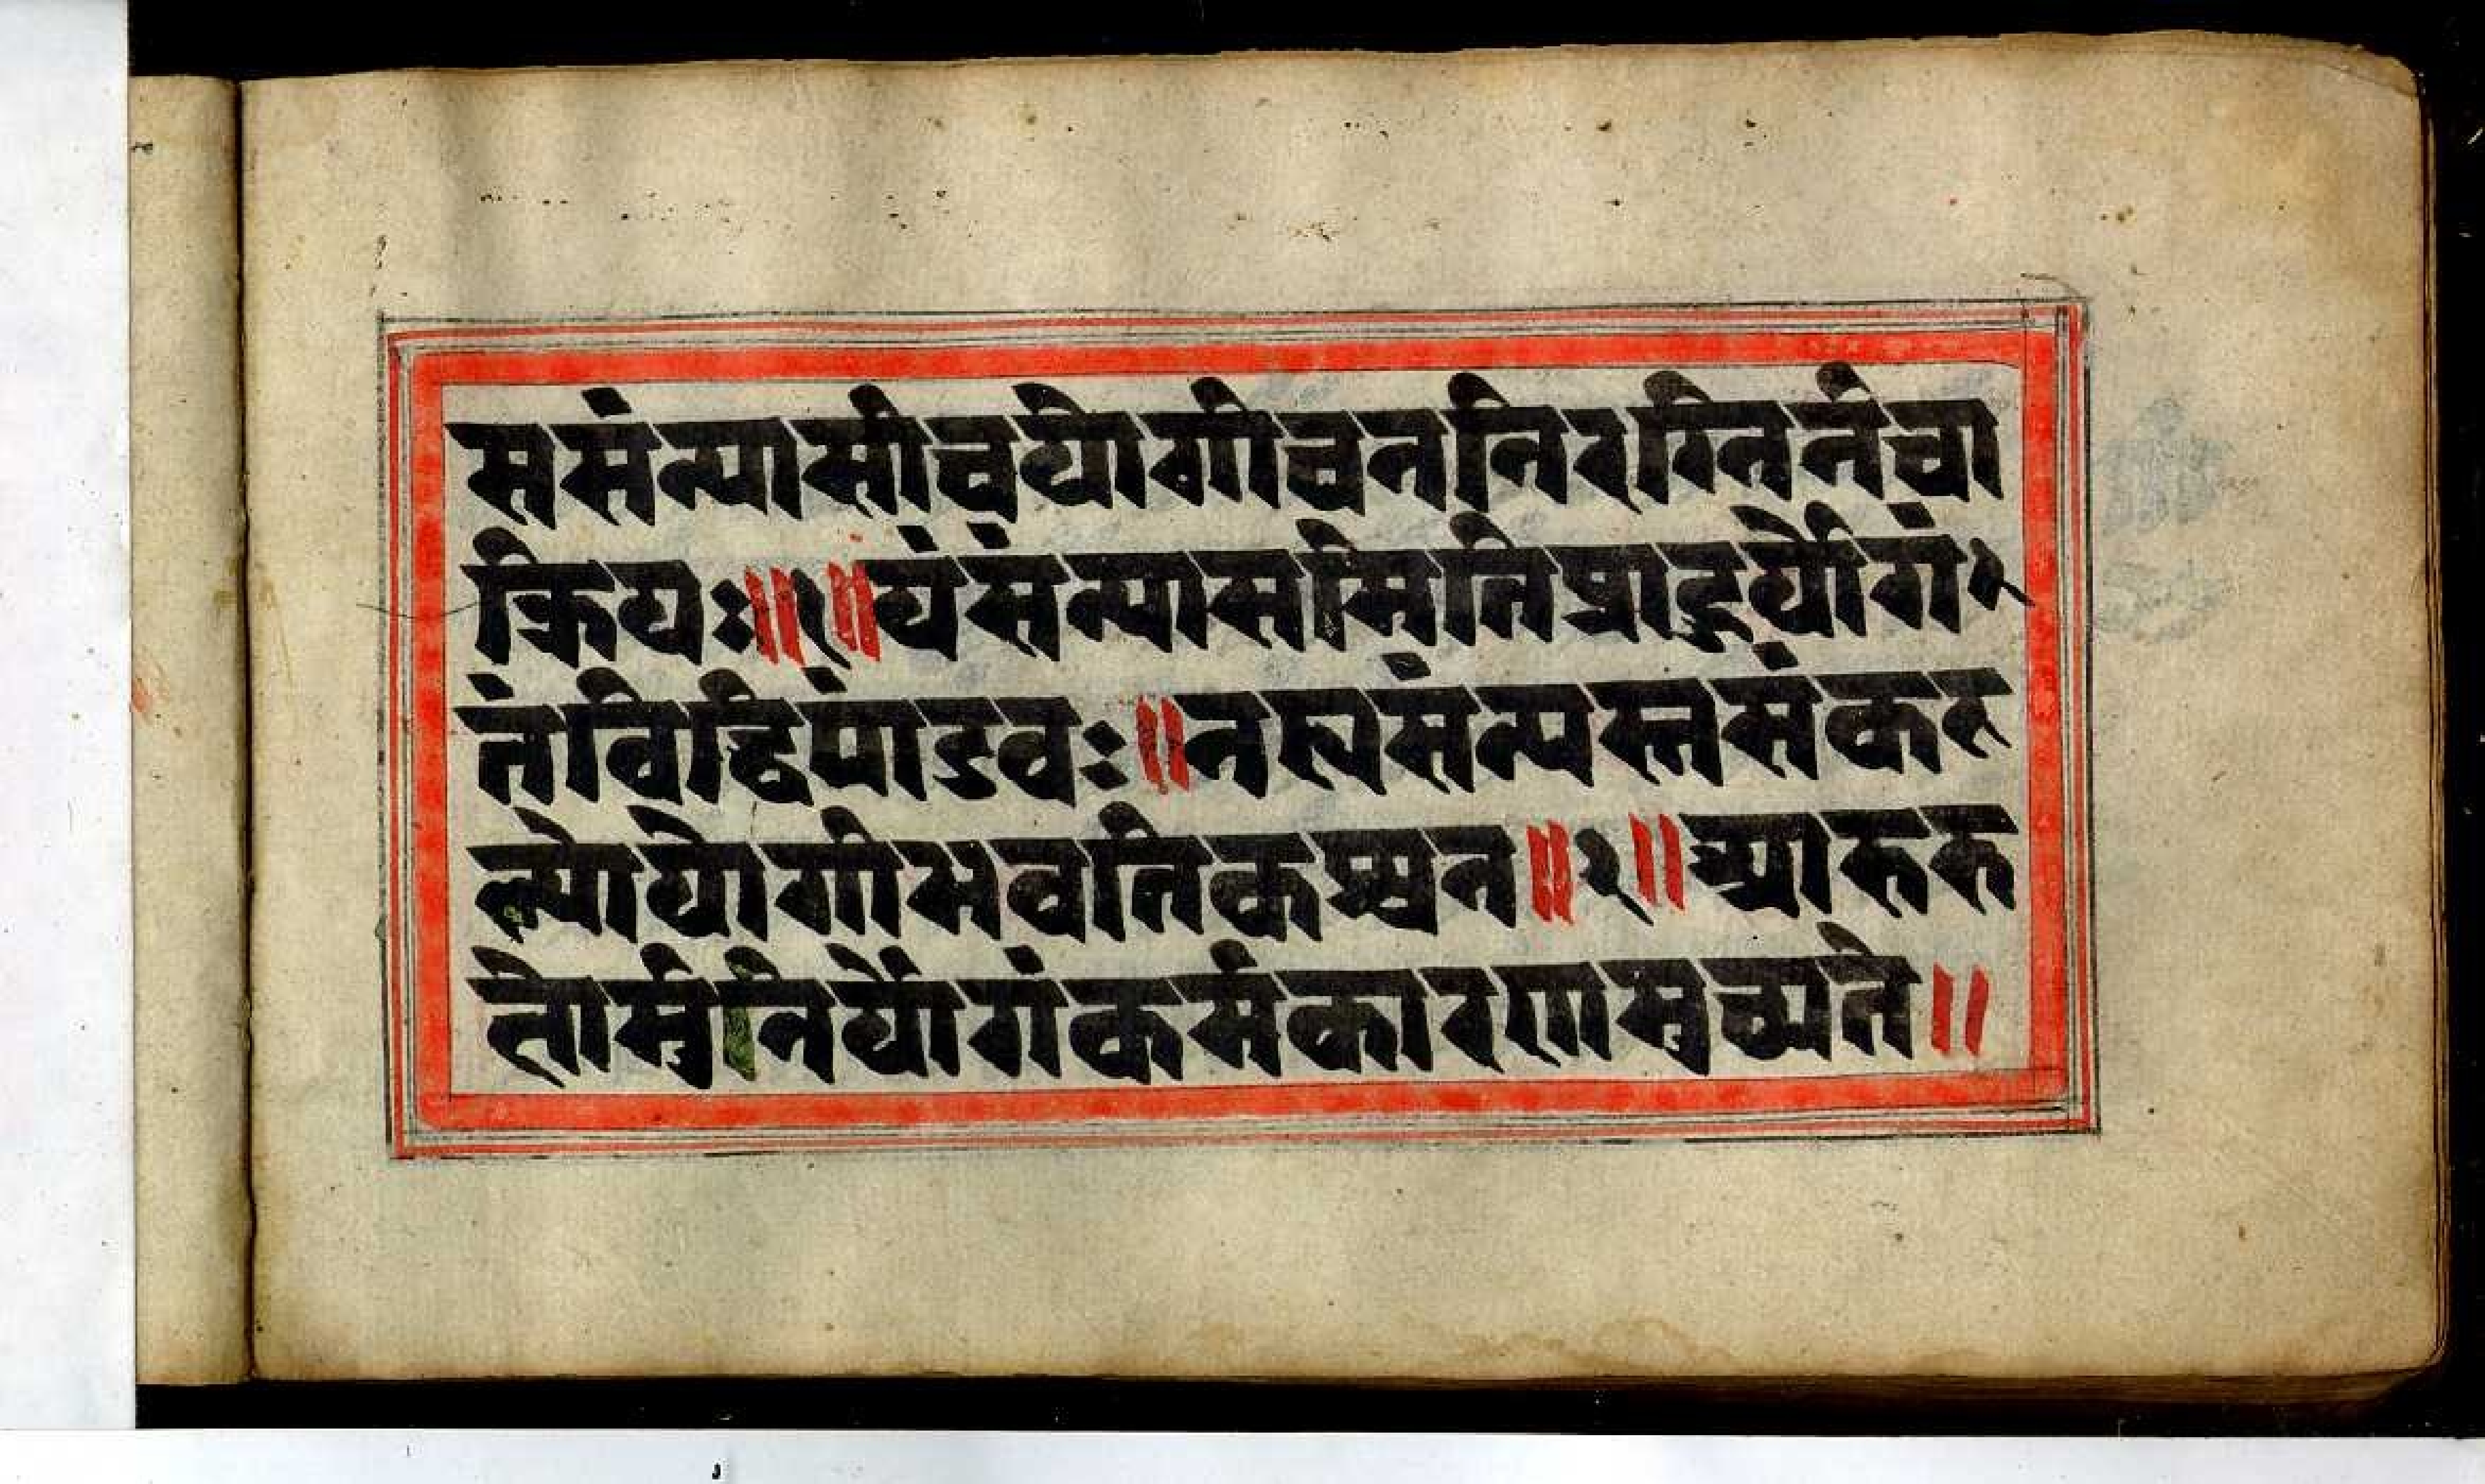 ससंन्यासीचयोगीचननिरग्निर्नचा
क्रियः॥१॥यंसंन्यासमितिप्राहुर्योगं
तंविद्धिपांडवः॥नह्यसंन्यस्तसंकरु
ल्पोयोगीभवतिकश्चन॥२॥आरुरु
तोर्मुनेर्योगंकर्मकारणमुच्यते॥